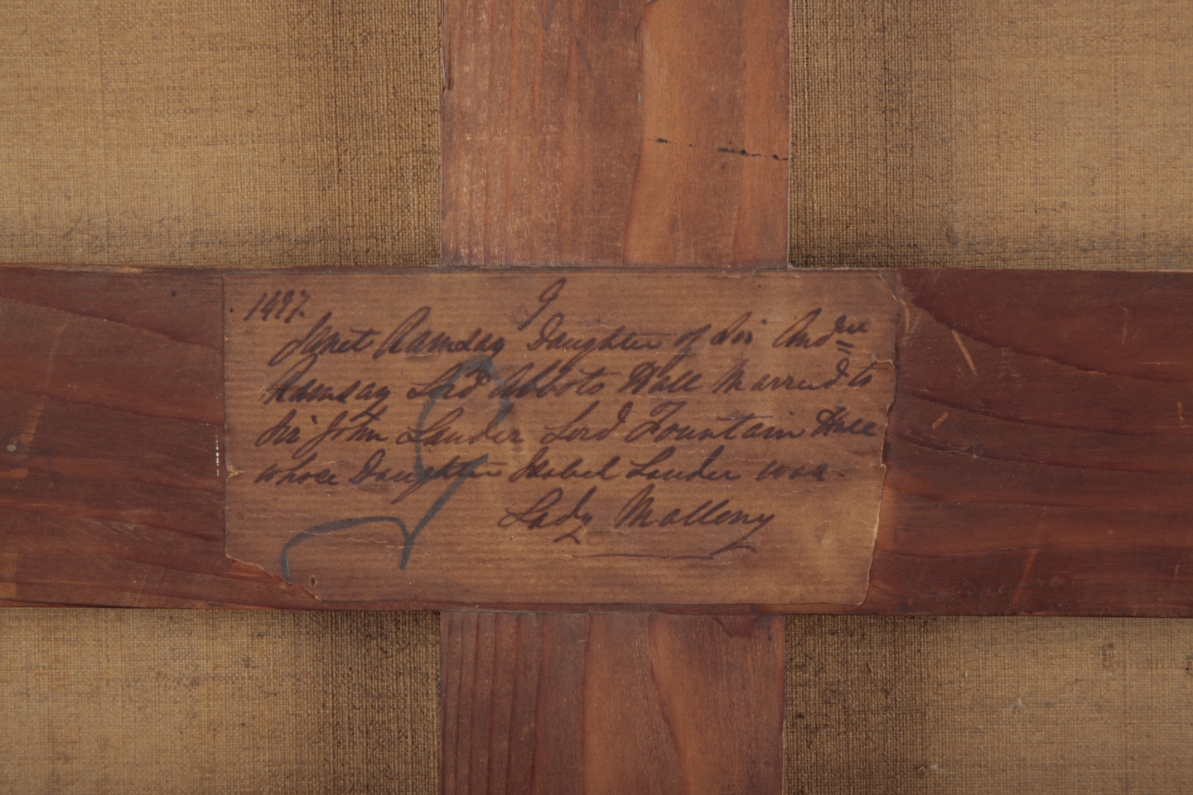 1497. 9
Janet Ramsay Daughter of Sir Andrew
Ramsay Lord Abbots Hall Married to
Sir John Lauder Lord Fountain Hall
whose Daughter Isobel Lauder was
Lady Malleny